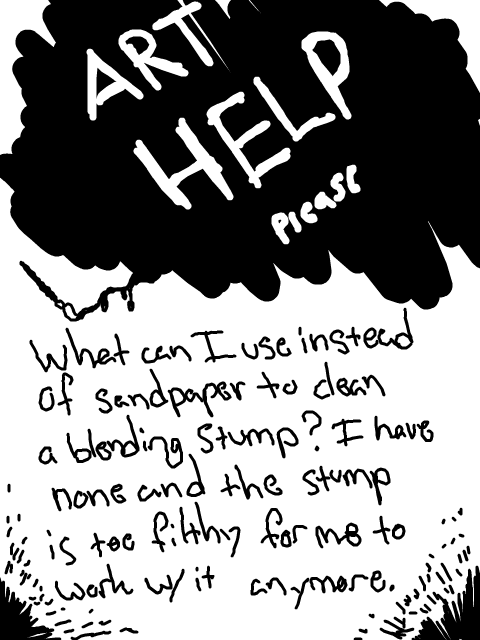 ART
HELP
please
What can I use instead
of sandpaper to clean
a blending stump? I have
none and the stump
is too filthy for me to
work w/ it anymore.